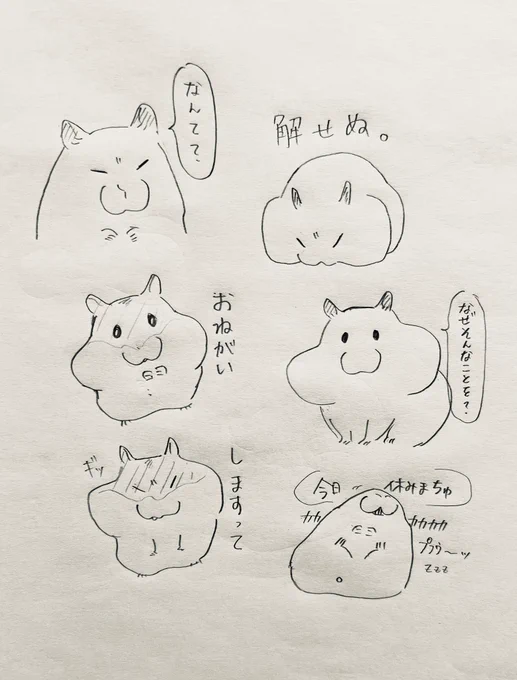 なんてて？
解せぬ。
おねがい
なぜそんなことを？
ギッ
しますって
今日
休みまちゅ
カカ
カカカカ
プラウ〜ッ
zzz